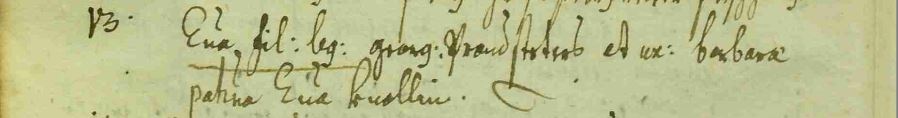 13. Eua fil: leg: georg: Prandstetters et ux: barbara
patrina Eua knollin.